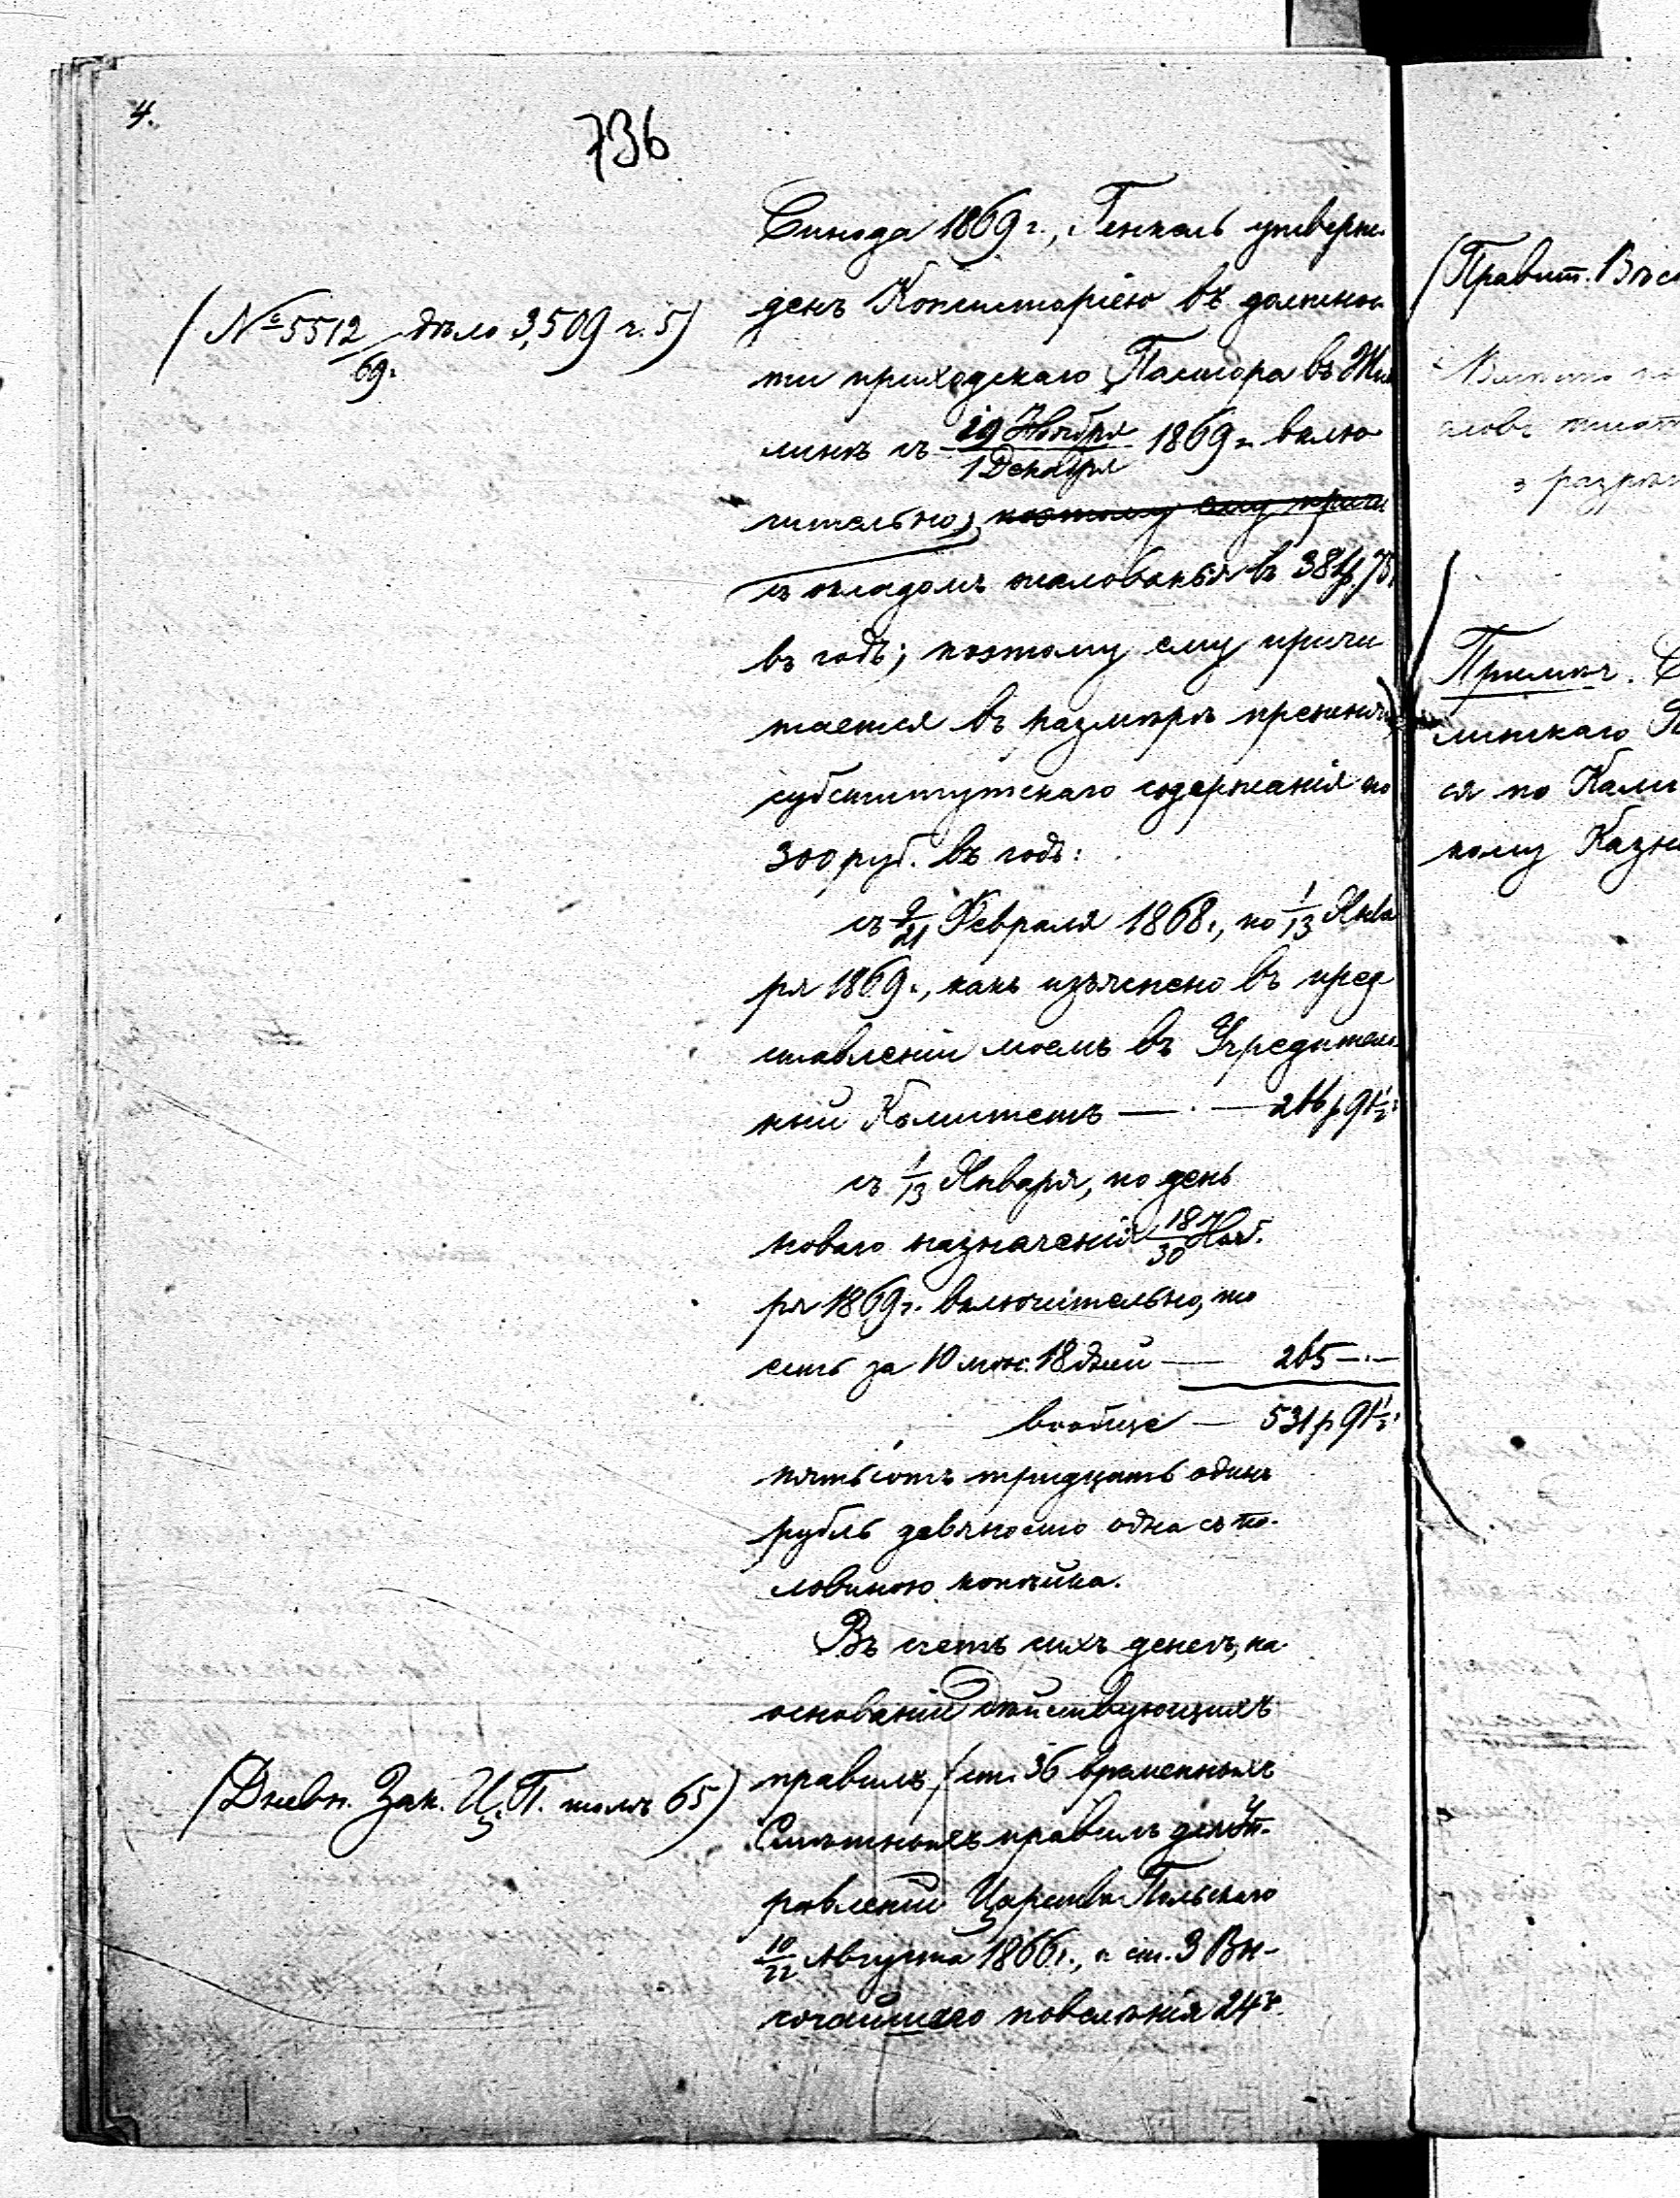 4.
736
Синода 1869 г., Генкель утверж-
денъ Консисторіею въ должнос
(№ 5512/69. дѣло 3,509 ч. 5)
ти приходскаго Пастора въ
линѣ съ 19 Ноября / 1 Декабря 1869 г. вклю
чительно, поэтому ему причи
съ окладомъ жалованья въ 384 р. 75
въ годъ; поэтому ему причи
тается въ размѣрѣ прежняго
субститутскаго содержанія по
300 руб. въ годъ:
съ 9/21 Февраля 1868 г., по 1/13 Янва
ря 1869 г., какъ изъяснено въ пред
ставленіи моемъ въ Учредитель
ный Комитетъ — · — 266 р 91½
съ 1/13 Января, по день
новаго назначенія 18/30 Нояб.
ря 1869 г. включительно, то
есть за 10 мѣс. 18 дней — 265 — · —
вообще — 531 р 91½
пятьсотъ тридцать одинъ
рубль девяносто одна съ по-
ловиною копѣйка.
Въ счетъ сихъ денегъ, на
основаніи дѣйствующихъ
правилъ (ст. 36 временныхъ
(Дневн. Зак. Ц. П. томъ 65)
Смѣтныхъ правилъ для Уп-
равленій Царства Польскаго
10/22 Августа 1866 г., и ст. 3 Вы-
сочайшаго повелѣнія 24
(Правит. Вѣс
Примѣч. С
линскаго
ся по Кали
кому Казн